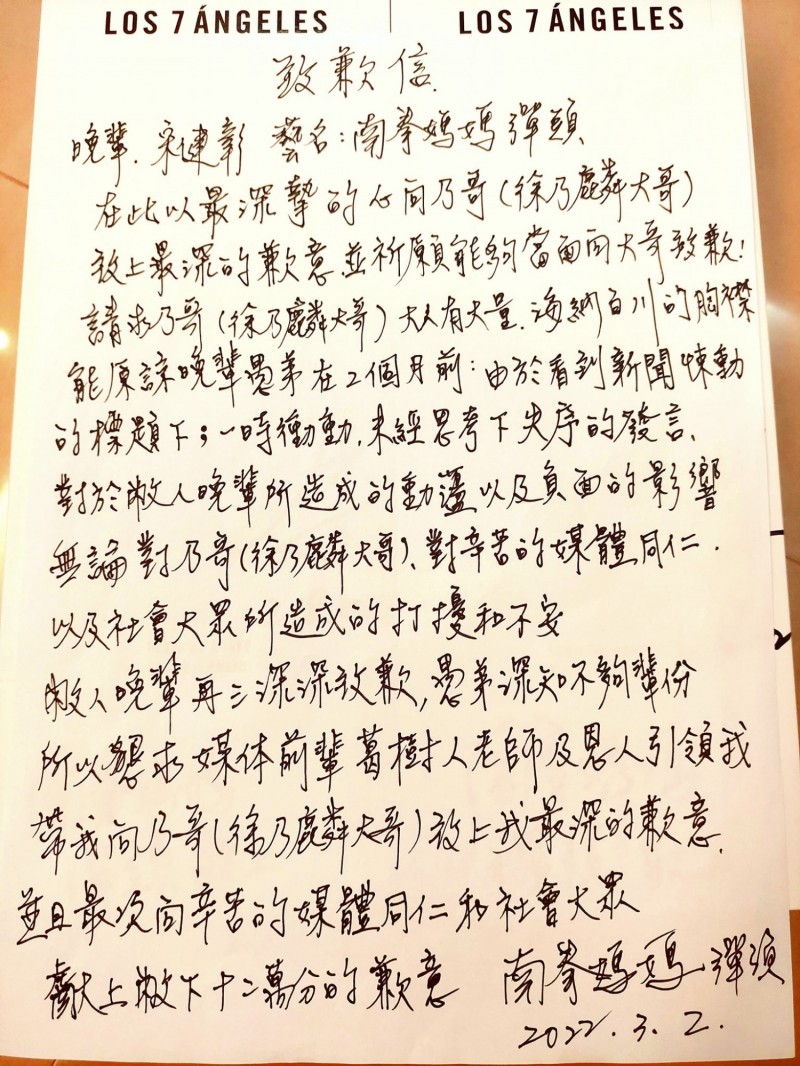 LOS 7 ÁNGELES LOS 7 ÁNGELES
致歉信.
晚輩.宋健彰 藝名:南拳媽媽彈頭
在此以最深摯的心向乃哥(徐乃麟大哥)
致上最深的歉意.並祈願能夠當面向大哥致歉!
請求乃哥(徐乃麟大哥)大人有大量.海納百川的胸襟
能原諒晚輩愚弟在2個月前:由於看到新聞悚動
的標題下;一時衝動,未經思考下失序的發言、
對於敝人晚輩所造成的動盪以及負面的影響
無論對乃哥(徐乃麟大哥)、對辛苦的媒體同仁.
以及社會大眾所造成的打擾和不安
敝人晚輩再三深深致歉,愚弟深知不夠輩份
所以懇求媒体前輩葛樹人老師及恩人引領我
帶我向乃哥(徐乃麟大哥)致上我最深的歉意.
並且最次向辛苦的媒體同仁和社會大眾
獻上敝下十二萬分的歉意 南拳媽媽彈頭
2022.3.2.